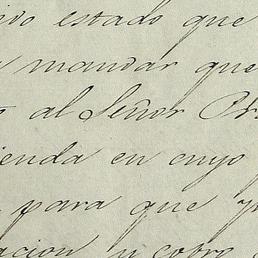 ido estado que
mandar que
al Señor Pr
ienda en cuyo
para que
acion y cobro